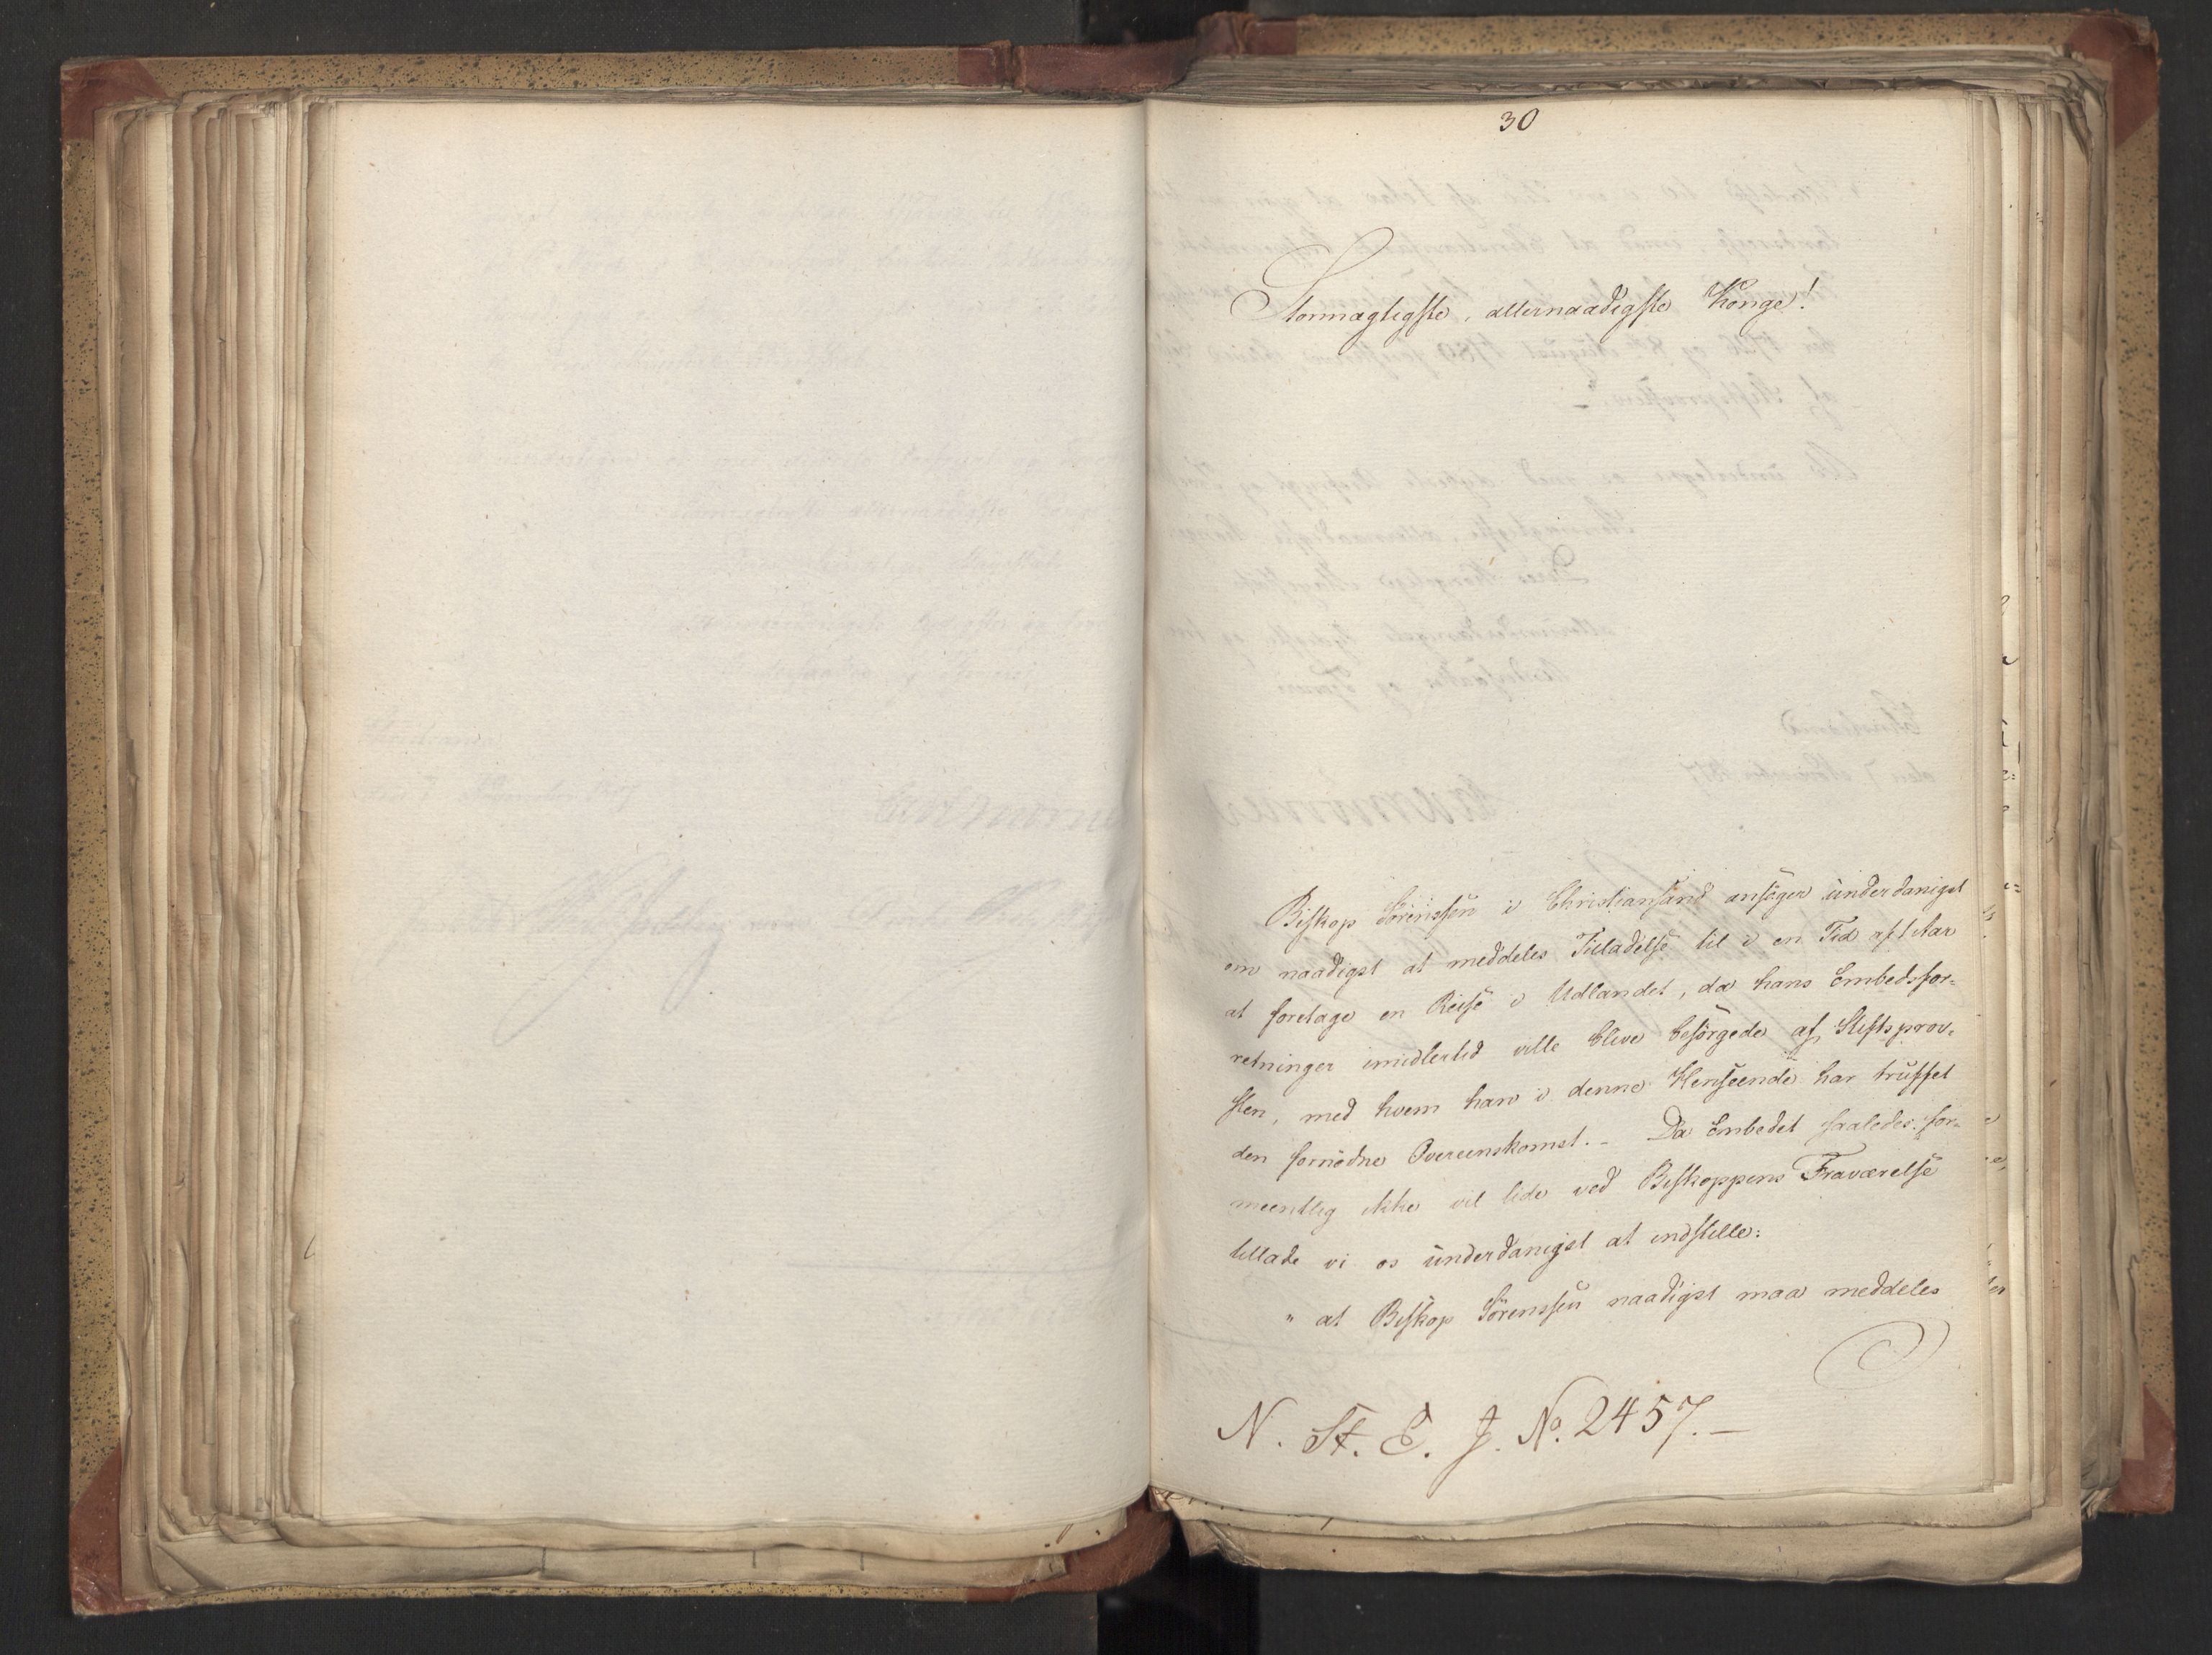 30
Stormægtigste, allernaadigste Konge!
Biskop Sörenssen i Christiansand ansöger underdanigst
om naadigst at meddeles Tilladelse til i en Tid af 1 Aar
at foretage en Reise i Udlandet, da hans Embedsfor-
retninger imidlertid ville blive besörgede af Stiftsprov-
sten, med hvem han i denne Henseende har truffet
den fornödne Overeenskomst. - Da Embedet saaledes for-
meentlig ikke vil lide ved Biskoppens Fraværelse
tillade vi os underdanigst at indstille:
" at Biskop Sörenssen naadigst maa meddeles
N. St. E. J. No. 2457. -